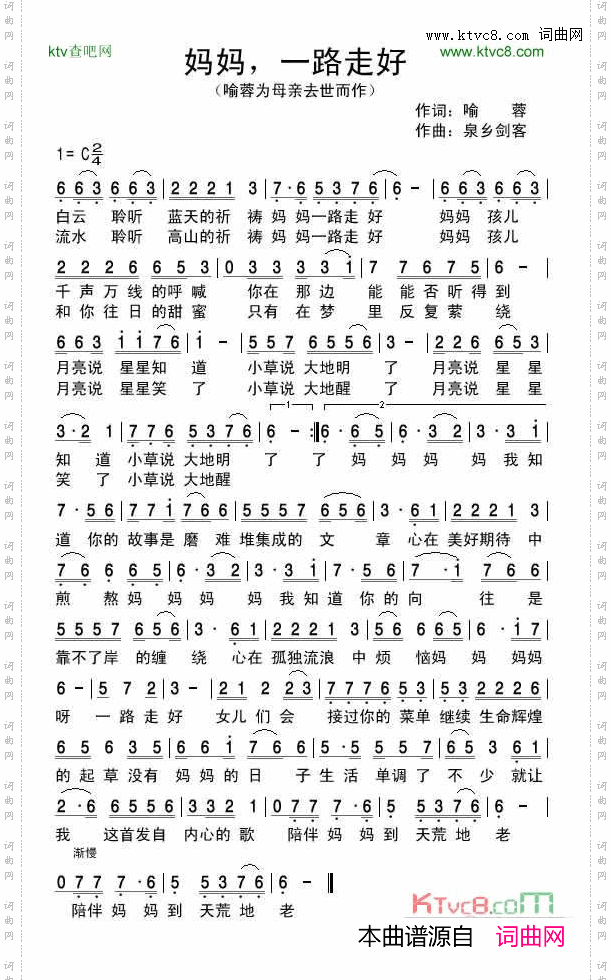 www.ktvc8.com 词曲网
ktv查吧网
www.ktvc8.com
妈妈，一路走好
（喻蓉为母亲去世而作）
作词：喻 蓉
作曲：泉乡剑客
1= C 2/4
6 6 3 6 6 3 | 2 2 2 1 3 | 7·6 5 3 7 6 | 6 - | 6 6 3 6 6 3 |
白云 聆听 蓝天的祈 祷 妈 妈一路走 好 妈妈 孩儿
流水 聆听 高山的祈 祷 妈 妈一路走 好 妈妈 孩儿
2 2 2 6 6 5 3 | 0 3 3 3 1 | 7 7 6 7 5 | 6 - |
千声万线的呼喊 你在 那边 能 能否听得到
和你往日的甜蜜 只有 在梦 里 反复萦 绕
6 6 3 1 1 7 6 | 5 5 5 3 5 3 2 | 3 - | 2 2 6 6 6 3 |
月亮说 星星知 道 小草说 大地明 了 月亮说 星星
月亮说 星星笑 了 小草说 大地醒 了 月亮说 星星
1 2
3·2 1 | 7 7 6 5 3 7 6 | 6 - :| 6·6 5 | 6·3 2 | 3·3 1 |
知 道 小草说 大地明 了 了 妈 妈妈 妈我知
笑 了 小草说 大地醒
7·5 6 | 7 7 1 7 6 6 | 5 5 5 7 6 5 6 | 3·6 1 | 2 2 2 1 3 |
道 你的 故事是 磨 难 堆集成的 文 章 心在 美好期待 中
7 6 6 5 | 6·3 2 | 3·3 1 | 7·5 6 | 1 7 6 6 |
煎 熬妈 妈妈 妈我知道你的向 往是
5 5 5 7 6 5 6 | 3·6 1 | 2 2 2 1 5 6 | 6 6 5 6 1 7 |
靠不了岸 的缠 绕 心在 孤独流浪 中 烦 恼妈妈 妈妈
6 - | 5 7 2 | 3 - | 2 2 1 2 2 3 | 7 7 7 6 5 3 | 5 3 2 2 2 3 |
呀 一路走好 女儿们会 接过你的 菜单 继续 生命辉煌
6 5 6 5 3 | 6 6 1 7 6 | 6·2 3 | 7 7 6 5 | 6 5 2 2 |
的起草没有 妈妈的日 子生活 单调了 不 少就让
2·6 | 5 5 5 6 | 2 2 2 1 | 3 - | 1 0 7 7 | 7·6 5 | 5 3 7 6 | 6 - |
我 这首发自 内心的 歌 陪伴 妈 妈到 天荒地 老
渐慢
0 7 7 7·6 | 5 5 3 7 6 | 6 - ‖
陪伴 妈 妈到 天荒地 老
KTvc8.com
本曲谱源自 词曲网